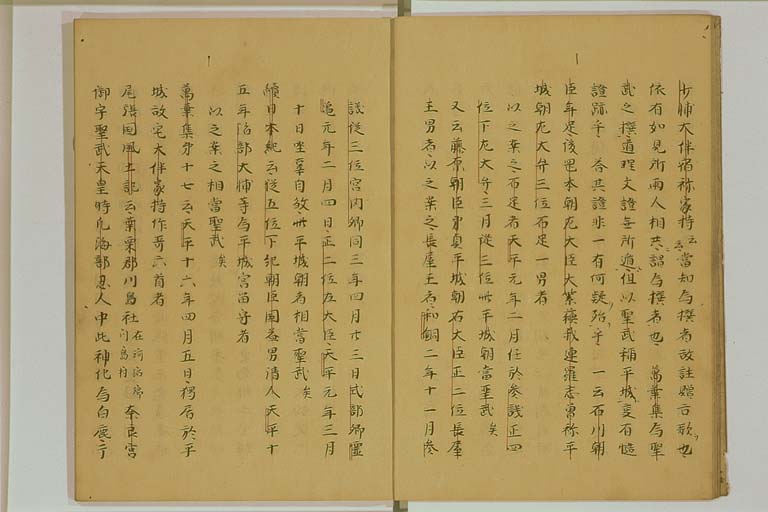 少補大伴宿祢家持云當知為撰者故註贈言歌也
依有如見所兩人相共謂為撰者也 萬葉集為聖
武之撰道理文證無所遁但以聖武稱平城憂有慥
證跡乎 答共證非一有何疑殆乎 一云石川朝
臣年足後岡本朝尤大臣大紫蘓我連羅志曽祢平
城朝尤大弁三位石足一男者
以之案之石足者天平元年二月任於參議正四
位下尤大弁三月從三位卅平城朝當聖武矣
又云藤原朝臣弟貞平城朝右大臣正二位長屋
王男者以之案之長屋王者和銅二年十一月參
議從三位宮內卿同三年四月廿三日式部卿靈
龜元年二月四日正二位左大臣天平元年三月
十日坐事自放卅平城朝者相當聖武矣
續日本紀云從五位下紀朝臣國益男清人天平十
五年治部大輔等為平城宮留守者
以之案之相當聖武矣
萬葉集第十七云天平十六年四月五日獨居於平
城故宅大伴家持作哥六首者
尾張国風土記云葉栗郡川嶋社在河沼郷川嶋村 奈良宮
御宇聖武天皇時凡海部忍人申此神化為白鹿、